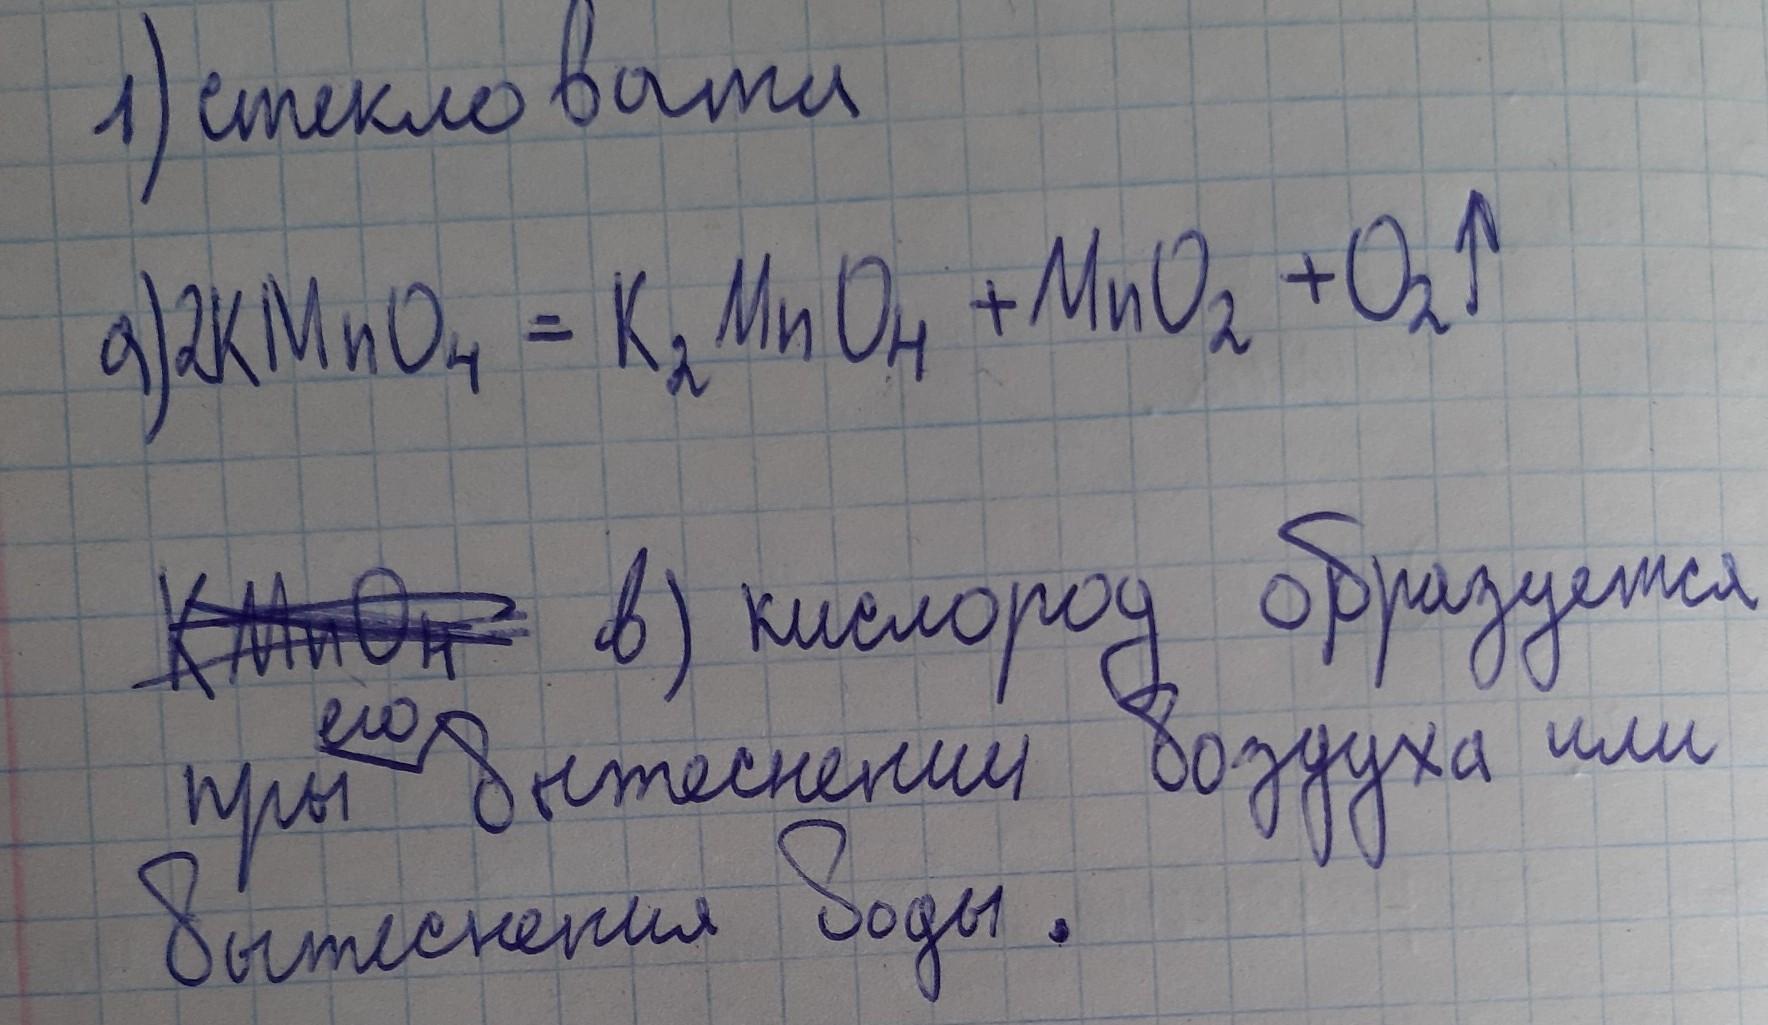 1) стекло ваты
а) 2KMnO₄ = K₂MnO₄ + MnO₂ + O₂↑
в) кислород образуется
пры его вытеснении воздуха или
вытеснения воды.